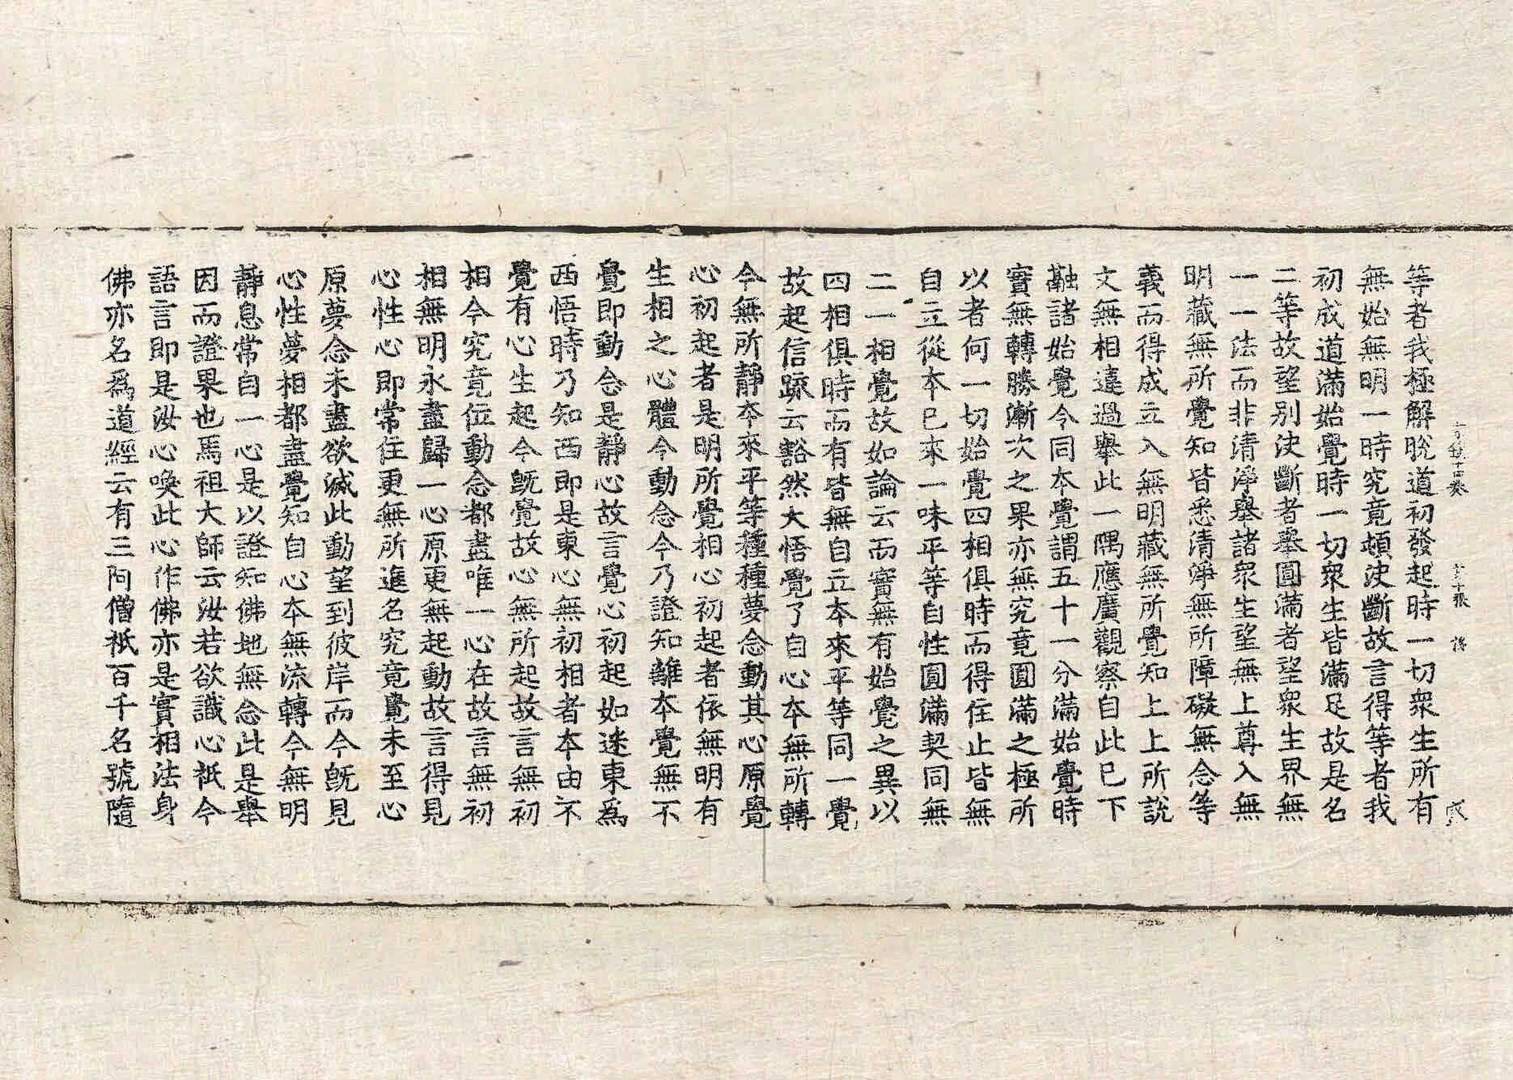 宗鏡十四卷
等者我極解脫道初發起時一切衆生所有
無始無明一時究竟頓決斷故言得等者我
初成道滿始覺時一切衆生皆滿足故是名
二等故望別決斷者擧圓滿者望衆生界無
一一法而非清淨擧諸衆生望無上尊入無
明藏無所覺知皆悉清淨無所障礙無念等
義而得成立入無明藏無所覺知上上所說
文無相違過擧此一隅應廣觀察自此已下
融諸始覺令同本覺謂五十一分滿始覺時
實無轉勝漸次之果亦無究竟圓滿之極所
以者何一切始覺四相俱時而得住止皆無
自立從本已來一味平等自性圓滿契同無
二一相覺故如論云而實無有始覺之異以
四相俱時而有皆無自立本來平等同一覺
故起信疏云豁然大悟覺了自心本無所轉
今無所靜本來平等種種夢念動其心原覺
心初起者是明所覺相心初起者依無明有
生相之心體今動念今乃證知離本覺無不
覺即動念是靜心故言覺心初起如迷東爲
西悟時乃知西即是東心無初相者本由不
覺有心生起今旣覺故心無所起故言無初
相今究竟位動念都盡唯一心在故言無初
相無明永盡歸一心原更無起動故言得見
心性心即常住更無所進名究竟覺未至心
原夢念未盡欲滅此動望到彼岸而今旣見
心性夢相都盡覺知自心本無流轉今無明
靜息常自一心是以證知佛地無念此是擧
因而證果也馬祖大師云汝若欲識心祇今
語言即是汝心喚此心作佛亦是實相法身
佛亦名爲道經云有三阿僧祇百千名號隨